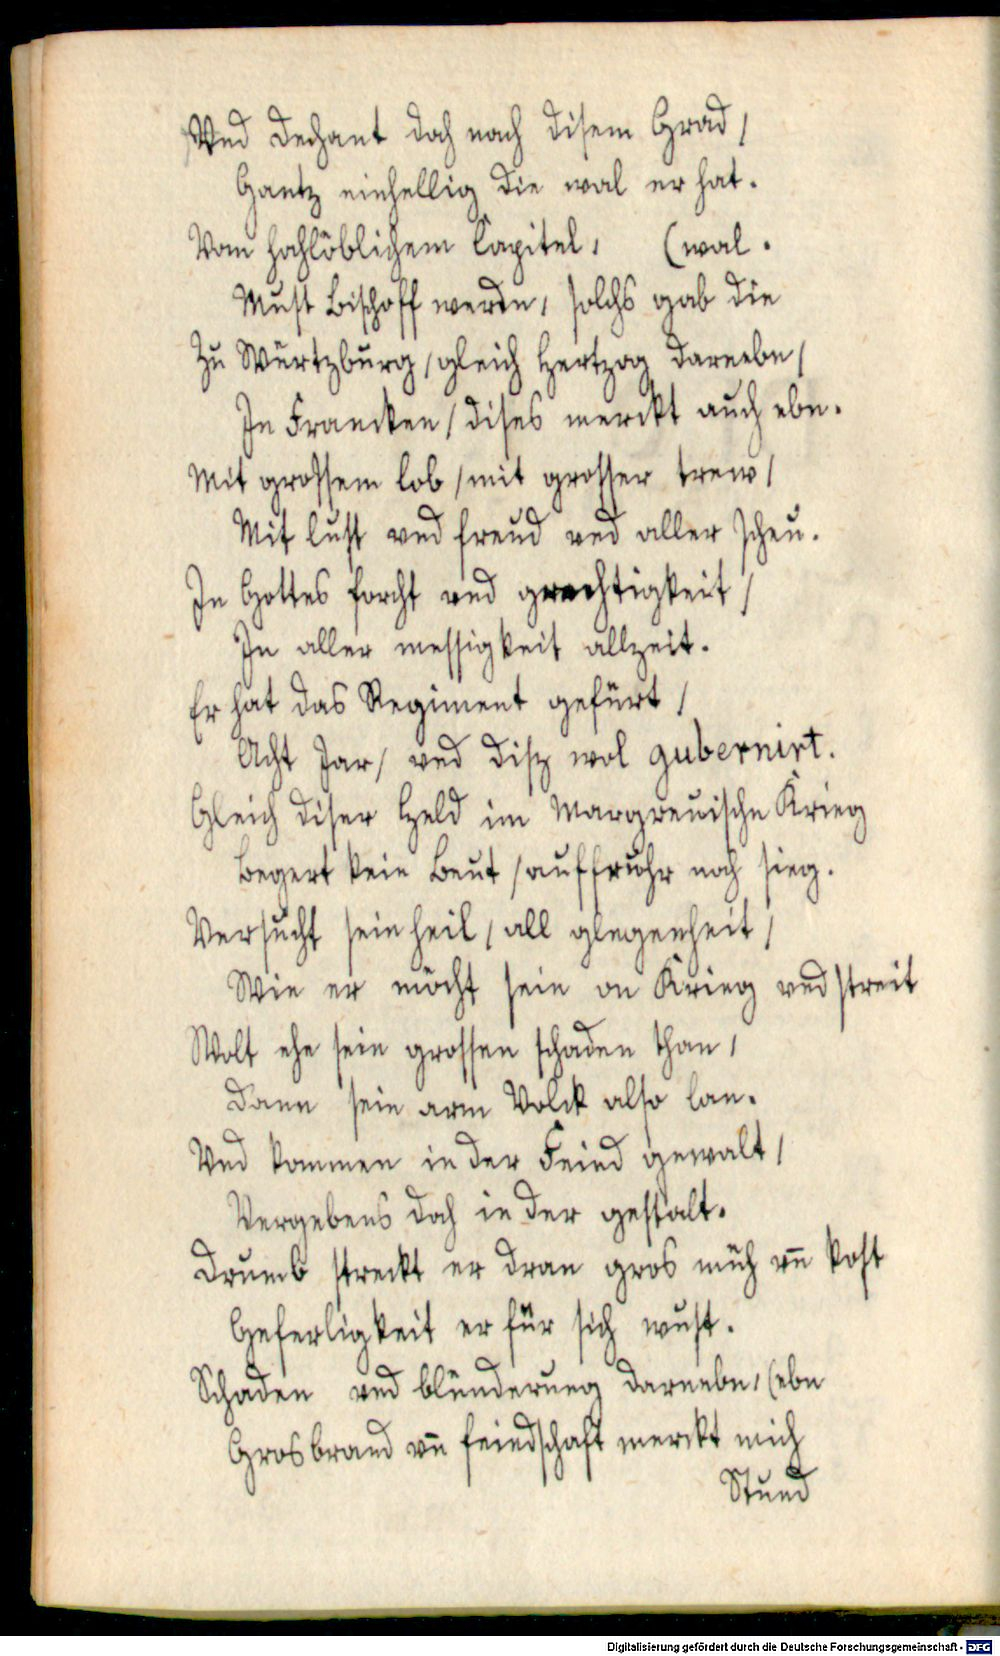 Vnd Dechant doch nach disem Grad /
Gantz einhellig die wal er hat.
Vom hochlöblichem Capitel / (wal.
Must Bischoff werdn / solchs gab die
Zu Würtzburg / gleich Hertzog darnebn /
In Francken / dises merckt auch ebn.
Mit grossem lob / mit grosser trew /
Mit lust vnd freud vnd aller scheu.
In Gottes forcht vnd grechtigkeit /
In aller messigkeit allzeit.
Er hat das Regiment gefürt /
Acht Jar / vnd disz wol gubernirt.
Gleich diser Held im Margreuische Krieg
Begert kein Beut / auffruhr noch sieg.
Versucht sein heil / all glegenheit /
Wie er möcht sein on Krieg vnd streit
Wolt ehe sein grossen schaden than /
Dann sein arm Volck also lan.
Vnd kommen in der Feind gewalt /
Vergebens doch in der gestalt.
Drumb streckt er dran gros müh vn̄ kost
Geferligkeit er für sich wust.
Schaden vnd blünderung darnebn / (ebn
Grosbrand vn̄ feindschaft merckt mich
Stund
Digitalisierung gefördert durch die Deutsche Forschungsgemeinschaft - DFG